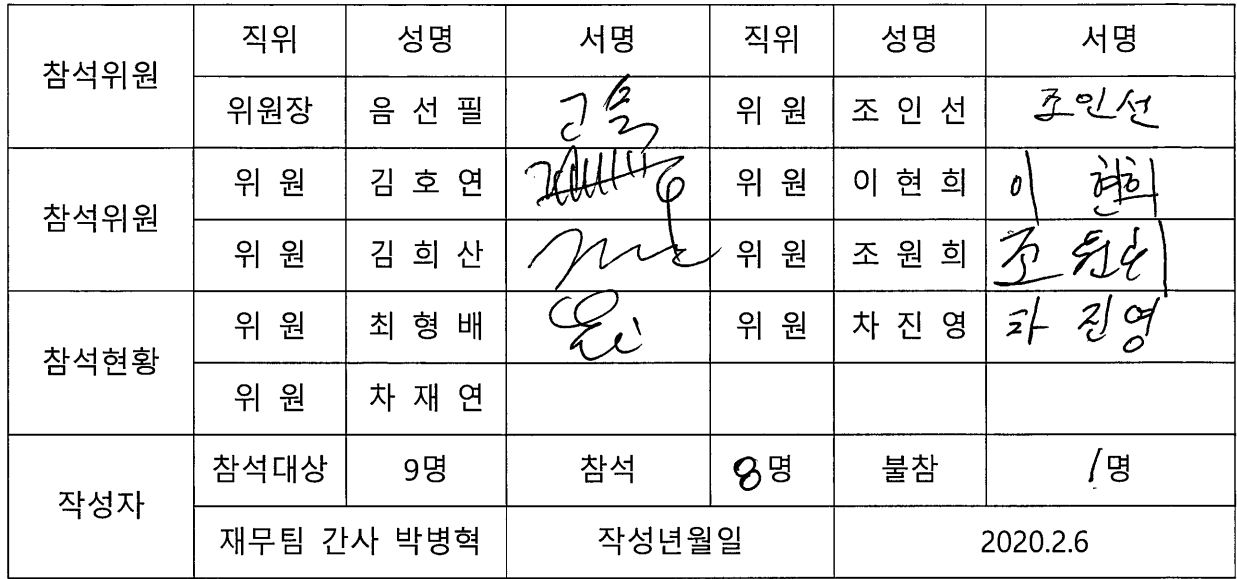 참석위원 직위 성명 서명 직위 성명 서명
위원장 음 선 필 위 원 조 인 선 조인선
참석위원 위 원 김 호 연 위 원 이 현 희 이 현희
위 원 김 희 산 위 원 조 원 희 조 원희
참석현황 위 원 최 형 배 위 원 차 진 영 차 진영
위 원 차 재 연
작성자 참석대상 9명 참석 8명 불참 1명
재무팀 간사 박병혁 작성년월일 2020.2.6